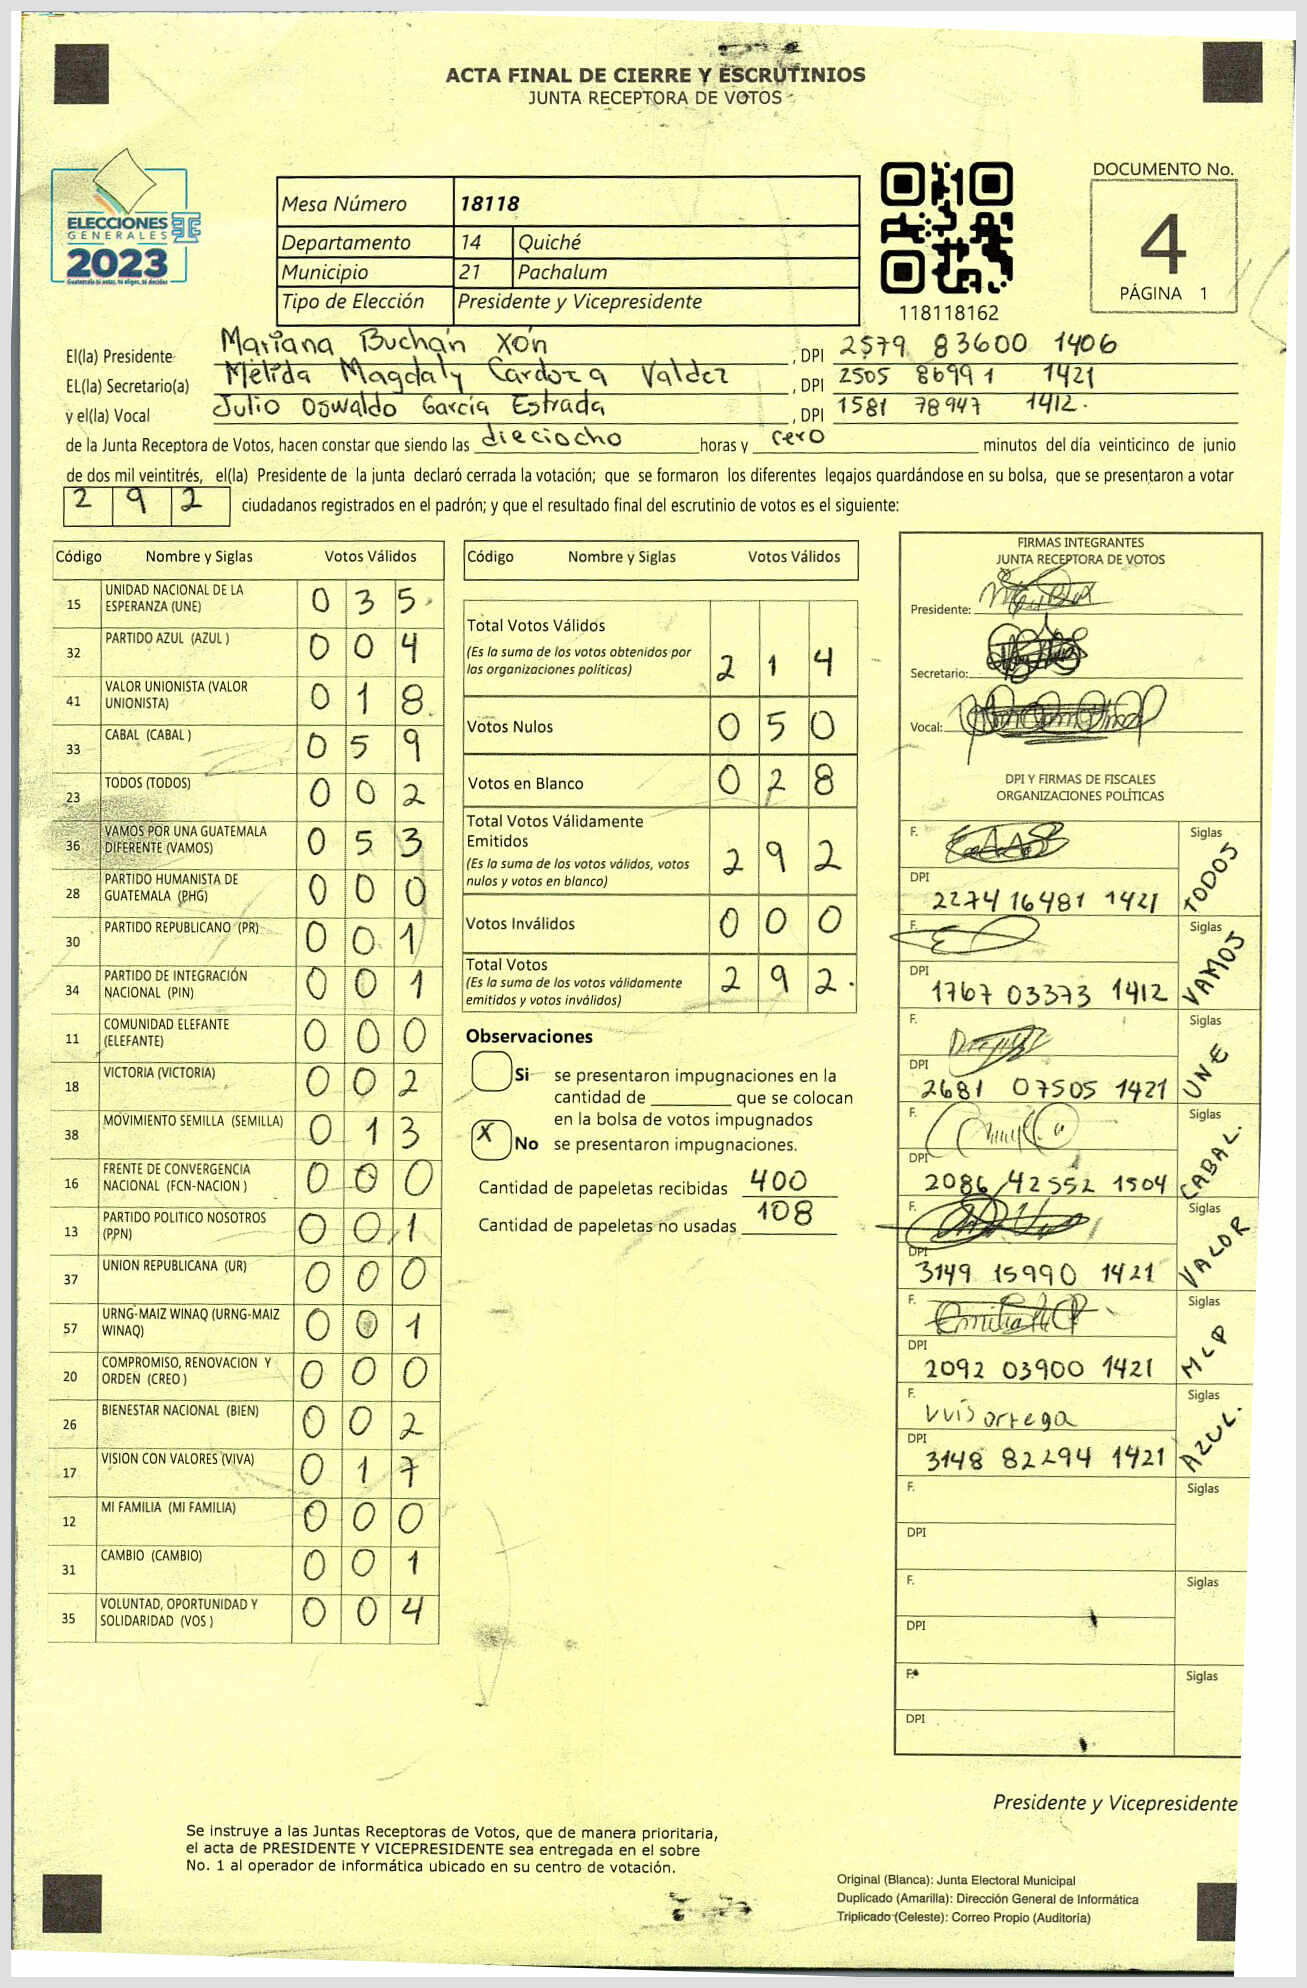 ACTA FINAL DE CIERRE Y ESCRUTINIOS
JUNTA RECEPTORA DE VOTOS
ELECCIONES
GENERALES
2023
Guatemala tú votas, tú eliges, tú decides
Mesa Número 18118
Departamento 14 Quiché
Municipio 21 Pachalum
Tipo de Elección Presidente y Vicepresidente
118118162
DOCUMENTO No.
4
PÁGINA 1
El(la) Presidente Mariana Buchán Xón , DPI 2579 83600 1406
EL(la) Secretario(a) Mélida Magdaly Cardoza Valdez , DPI 2505 86991 1421
y el(la) Vocal Julio Oswaldo García Estrada , DPI 1581 78947 1412.
de la Junta Receptora de Votos, hacen constar que siendo las dieciocho horas y cero minutos del día veinticinco de junio
de dos mil veintitrés, el(la) Presidente de la junta declaró cerrada la votación; que se formaron los diferentes legajos guardándose en su bolsa, que se presentaron a votar
292 ciudadanos registrados en el padrón; y que el resultado final del escrutinio de votos es el siguiente:
Código Nombre y Siglas Votos Válidos
15 UNIDAD NACIONAL DE LA ESPERANZA (UNE) 035
32 PARTIDO AZUL (AZUL ) 004
41 VALOR UNIONISTA (VALOR UNIONISTA) 018
33 CABAL (CABAL ) 059
23 TODOS (TODOS) 002
36 VAMOS POR UNA GUATEMALA DIFERENTE (VAMOS) 053
28 PARTIDO HUMANISTA DE GUATEMALA (PHG) 000
30 PARTIDO REPUBLICANO (PR) 001
34 PARTIDO DE INTEGRACIÓN NACIONAL (PIN) 001
11 COMUNIDAD ELEFANTE (ELEFANTE) 000
18 VICTORIA (VICTORIA) 002
38 MOVIMIENTO SEMILLA (SEMILLA) 013
16 FRENTE DE CONVERGENCIA NACIONAL (FCN-NACION ) 000
13 PARTIDO POLITICO NOSOTROS (PPN) 001
37 UNION REPUBLICANA (UR) 000
57 URNG-MAIZ WINAQ (URNG-MAIZ WINAQ) 001
20 COMPROMISO, RENOVACION Y ORDEN (CREO ) 000
26 BIENESTAR NACIONAL (BIEN) 002
17 VISION CON VALORES (VIVA) 017
12 MI FAMILIA (MI FAMILIA) 000
31 CAMBIO (CAMBIO) 001
35 VOLUNTAD, OPORTUNIDAD Y SOLIDARIDAD (VOS ) 004
Código Nombre y Siglas Votos Válidos
Total Votos Válidos 214
(Es la suma de los votos obtenidos por
las organizaciones políticas)
Votos Nulos 050
Votos en Blanco 028
Total Votos Válidamente
Emitidos 292
(Es la suma de los votos válidos, votos
nulos y votos en blanco)
Votos Inválidos 000
Total Votos 292.
(Es la suma de los votos válidamente
emitidos y votos inválidos)
Observaciones
Si se presentaron impugnaciones en la
cantidad de ________ que se colocan
en la bolsa de votos impugnados
X No se presentaron impugnaciones.
Cantidad de papeletas recibidas 400
Cantidad de papeletas no usadas 108
FIRMAS INTEGRANTES
JUNTA RECEPTORA DE VOTOS
Presidente:
Secretario:
Vocal:
DPI Y FIRMAS DE FISCALES
ORGANIZACIONES POLÍTICAS
F. Siglas TODOS
DPI 2274 16481 1421
F. Siglas VAMOS
DPI 1767 03373 1412
F. Siglas UNE
DPI 2681 07505 1421
F. Siglas CABAL.
DPI 2086 42552 1504
F. Siglas VALOR
DPI 3149 15990 1421
F. Siglas MLP
DPI 2092 03900 1421
F. Siglas AZUL.
ortega
DPI 3148 82294 1421
F. Siglas
DPI
F. Siglas
DPI
F. Siglas
DPI
Presidente y Vicepresidente
Se instruye a las Juntas Receptoras de Votos, que de manera prioritaria,
el acta de PRESIDENTE Y VICEPRESIDENTE sea entregada en el sobre
No. 1 al operador de informática ubicado en su centro de votación.
Original (Blanca): Junta Electoral Municipal
Duplicado (Amarilla): Dirección General de Informática
Triplicado (Celeste): Correo Propio (Auditoría)